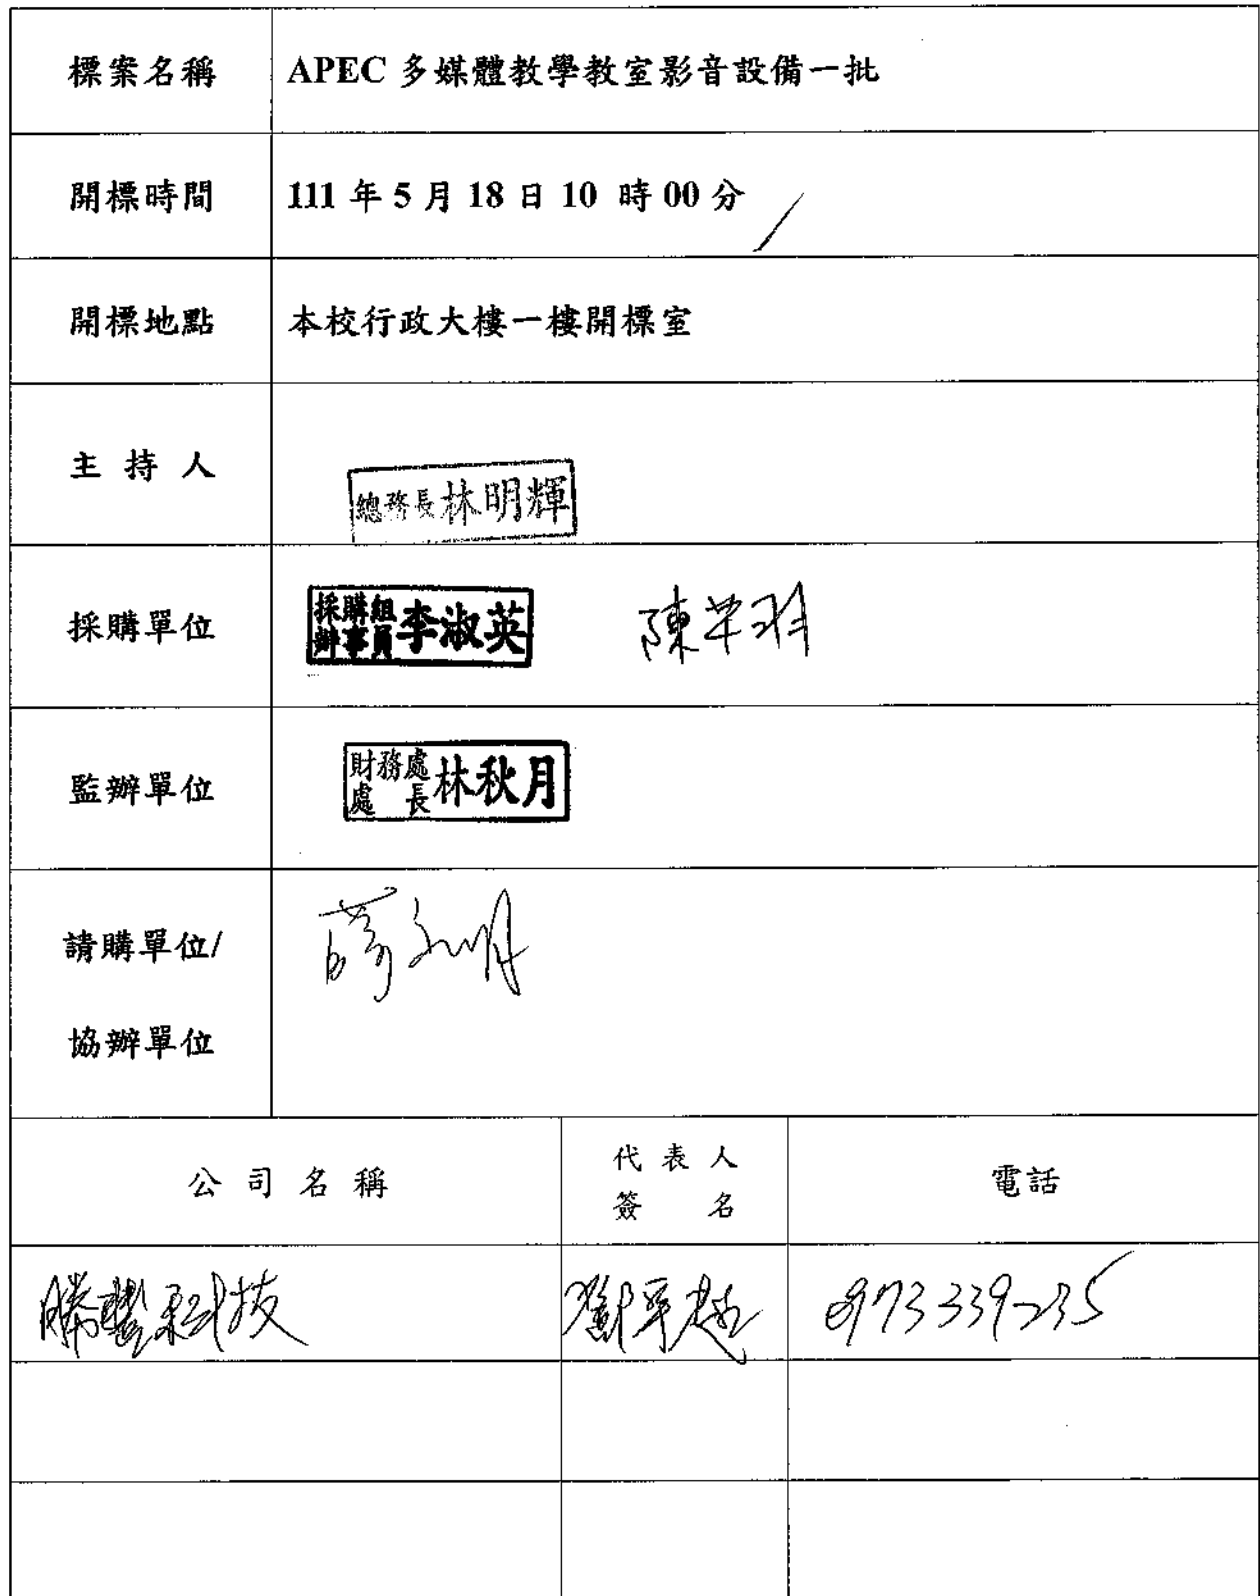 標案名稱 APEC 多媒體教學教室影音設備一批
開標時間 111 年 5 月 18 日 10 時 00 分
開標地點 本校行政大樓一樓開標室
主 持 人
總務長林明輝
採購單位
採購組
辦事員 李淑英
監辦單位
財務處
處 長 林秋月
請購單位/
協辦單位
公 司 名 稱
代 表 人
簽 名
電話
勝豐科技 0973339235